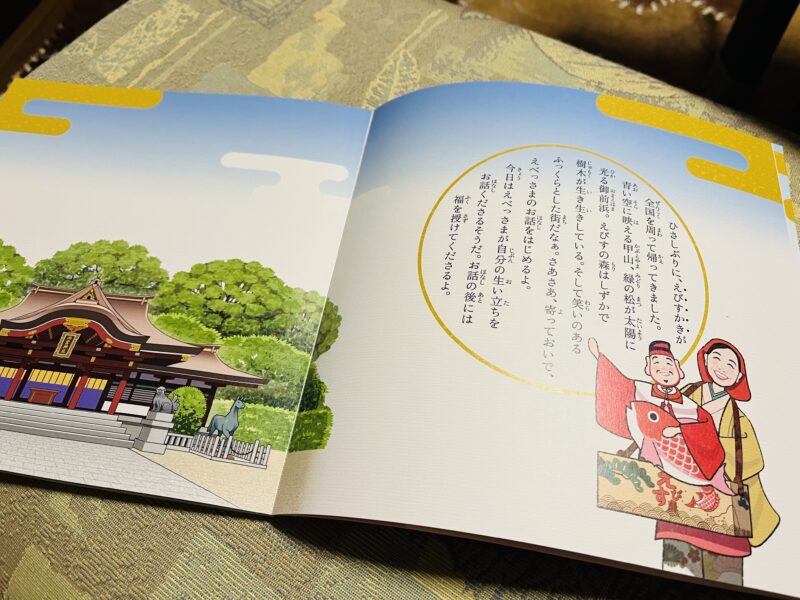 ひさしぶりに、えびすかきが
全国を周って帰ってきました。
青い空に映える甲山、緑の松が太陽に
光る御前浜。えびすの森はしずかで
樹木が生き生きしている。そして笑いのある
ふっくらとした街だなぁ。さあさあ、寄っておいで、
えべっさまのお話をはじめるよ。
今日はえべっさまが自分の生い立ちを
お話くださるそうだ。お話の後には
福を授けてくださるよ。
えびす